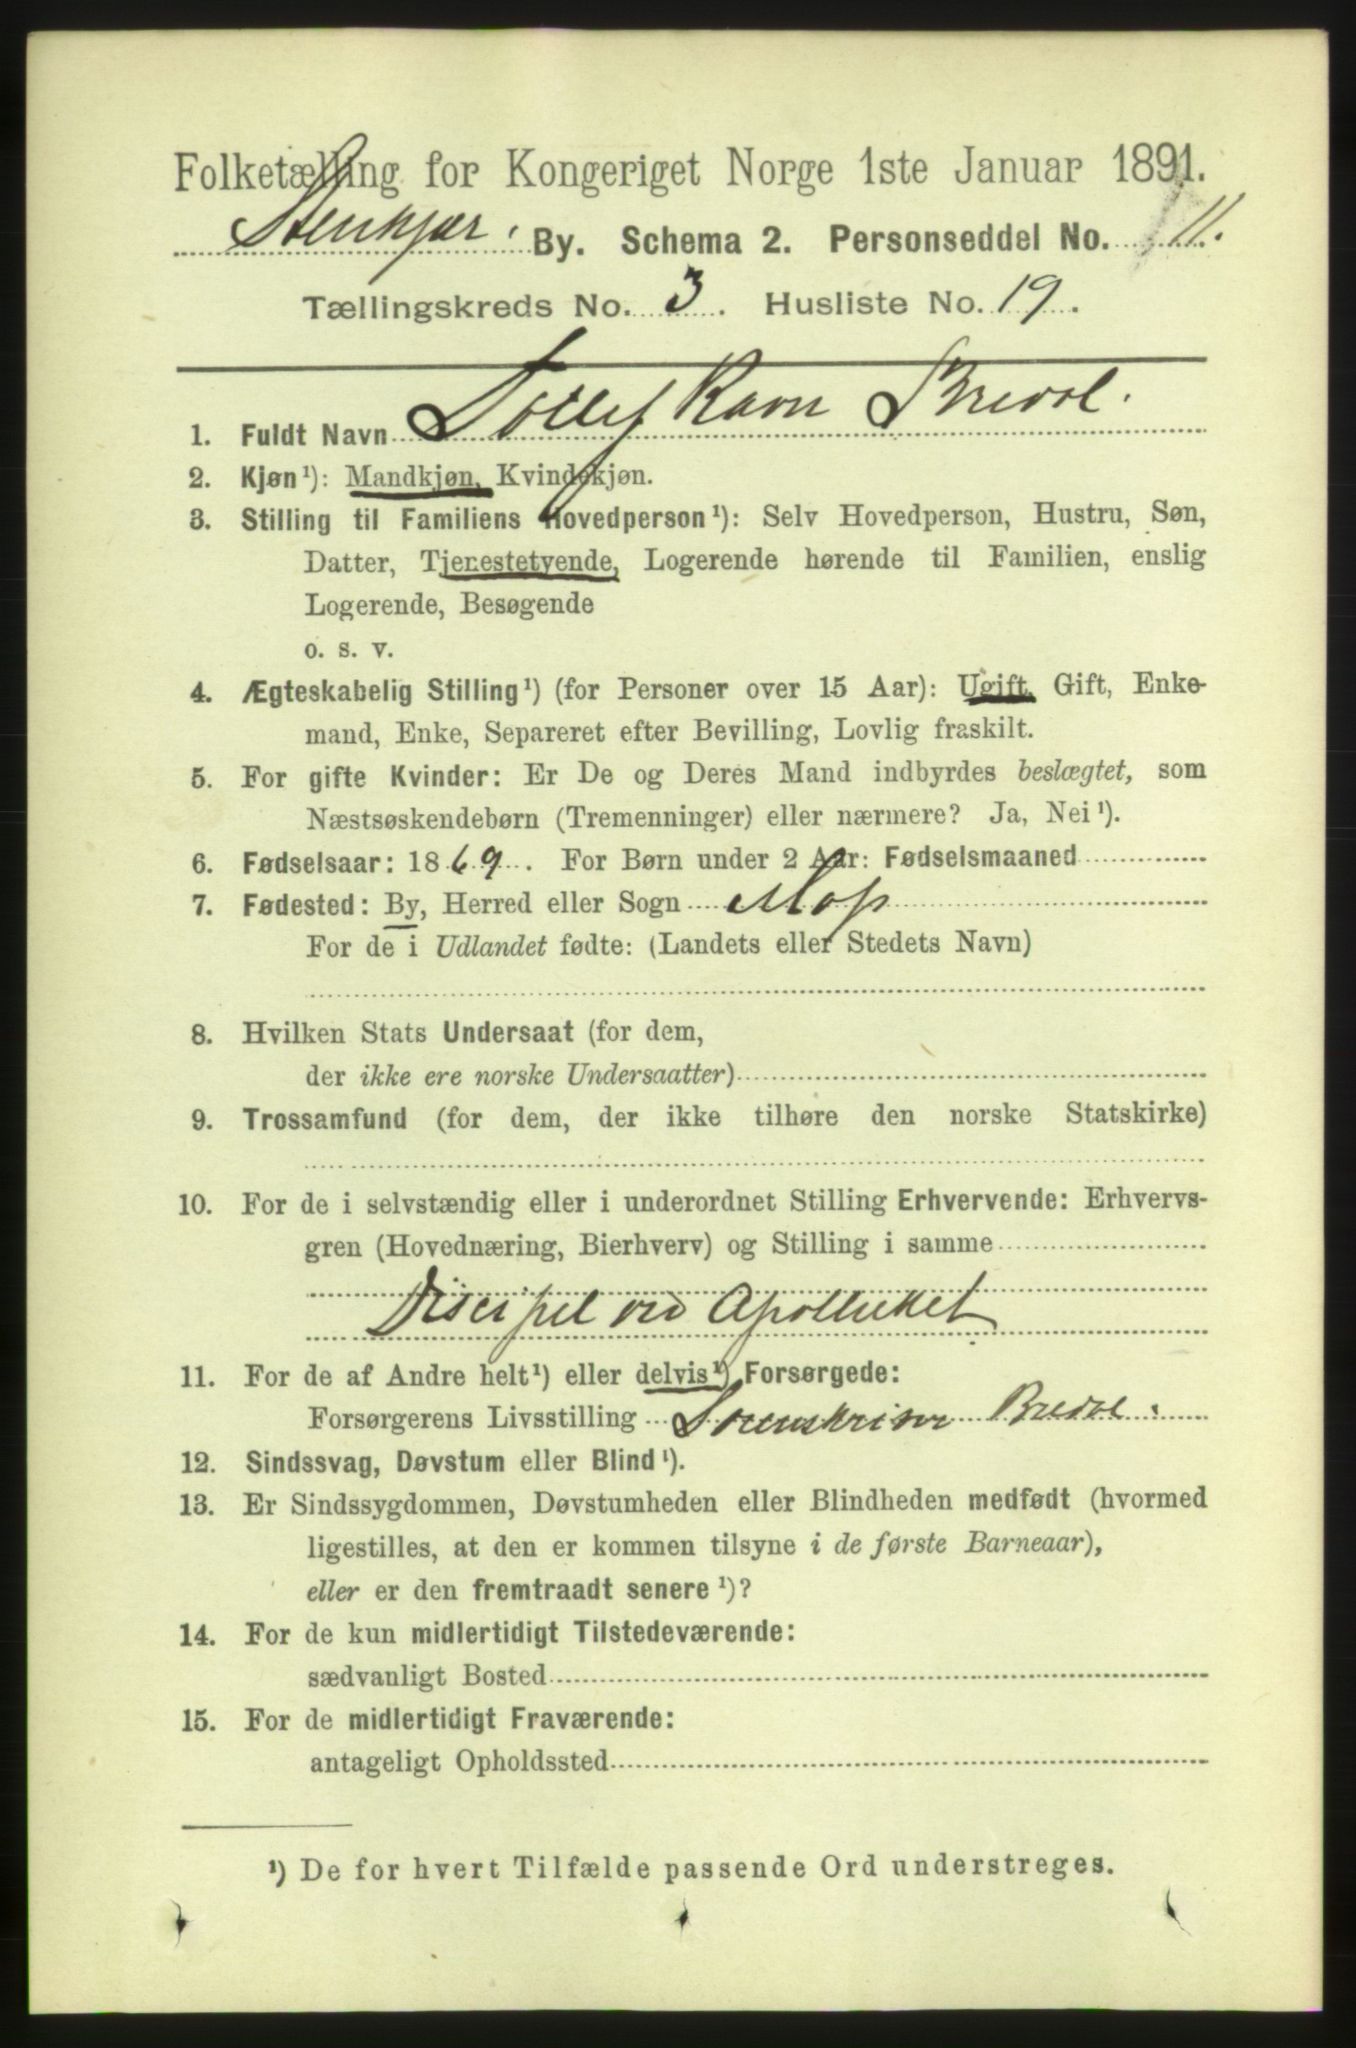 Folketælling for Kongeriget Norge 1ste Januar 1891.
Stenkjær. By. Schema 2. Personseddel No. 11.
Tællingskreds No. 3. Husliste No. 19.
1. Fuldt Navn Tollef Ravn Bredol.
2. Kjøn¹): Mandkjøn, Kvindekjøn.
3. Stilling til Familiens Hovedperson¹): Selv Hovedperson, Hustru, Søn,
Datter, Tjenestetyende, Logerende hørende til Familien, enslig
Logerende, Besøgende
o. s. v.
4. Ægteskabelig Stilling¹) (for Personer over 15 Aar): Ugift, Gift, Enke-
mand, Enke, Separeret efter Bevilling, Lovlig fraskilt.
5. For gifte Kvinder: Er De og Deres Mand indbyrdes beslægtet, som
Næstsøskendebørn (Tremenninger) eller nærmere? Ja, Nei¹).
6. Fødselsaar: 1869. For Børn under 2 Aar: Fødselsmaaned
7. Fødested: By, Herred eller Sogn Moss
For de i Udlandet fødte: (Landets eller Stedets Navn)
8. Hvilken Stats Undersaat (for dem,
der ikke ere norske Undersaatter)
9. Trossamfund (for dem, der ikke tilhøre den norske Statskirke)
10. For de i selvstændig eller i underordnet Stilling Erhvervende: Erhvervs-
gren (Hovednæring, Bierhverv) og Stilling i samme
Discipel ved Apotheket
11. For de af Andre helt¹) eller delvis¹) Forsørgede:
Forsørgerens Livsstilling Sorenskriver Bredol.
12. Sindssvag, Døvstum eller Blind¹).
13. Er Sindssygdommen, Døvstumheden eller Blindheden medfødt (hvormed
ligestilles, at den er kommen tilsyne i de første Barneaar),
eller er den fremtraadt senere¹)?
14. For de kun midlertidigt Tilstedeværende:
sædvanligt Bosted
15. For de midlertidigt Fraværende:
antageligt Opholdssted
¹) De for hvert Tilfælde passende Ord understreges.